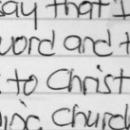 say that I
word and t
to Christ
Church